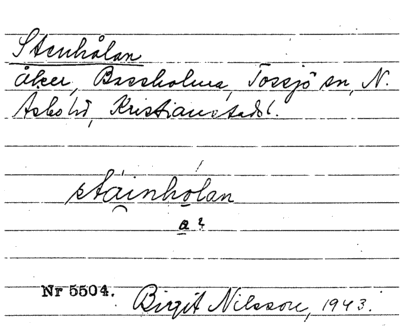 Stenhålan
åker, Bassholma, Tossjö sn, N.
Åsbo hd, Kristianstads l.
stáinhólan
a?
Nr 5504. Birgit Nilsson, 1943.